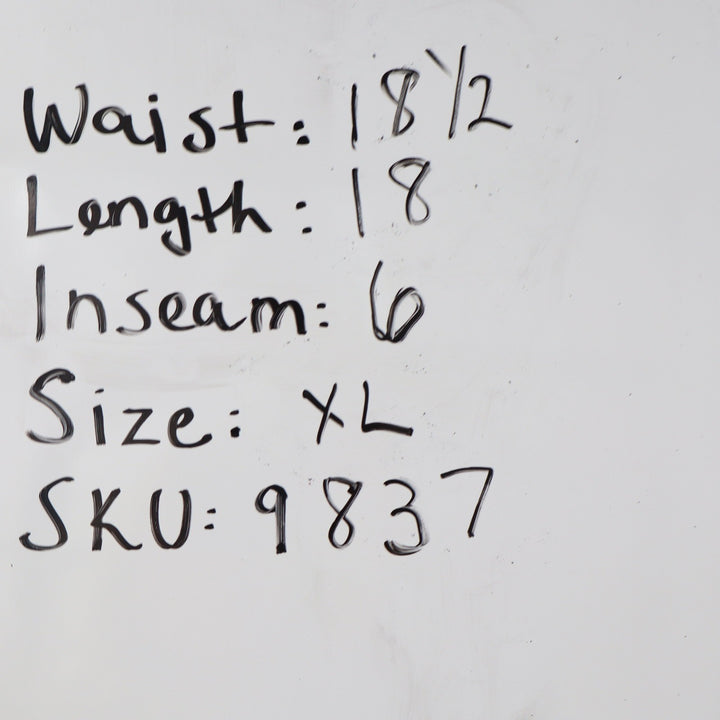 Waist: 18 1/2
Length: 18
Inseam: 6
Size: XL
SKU: 9837